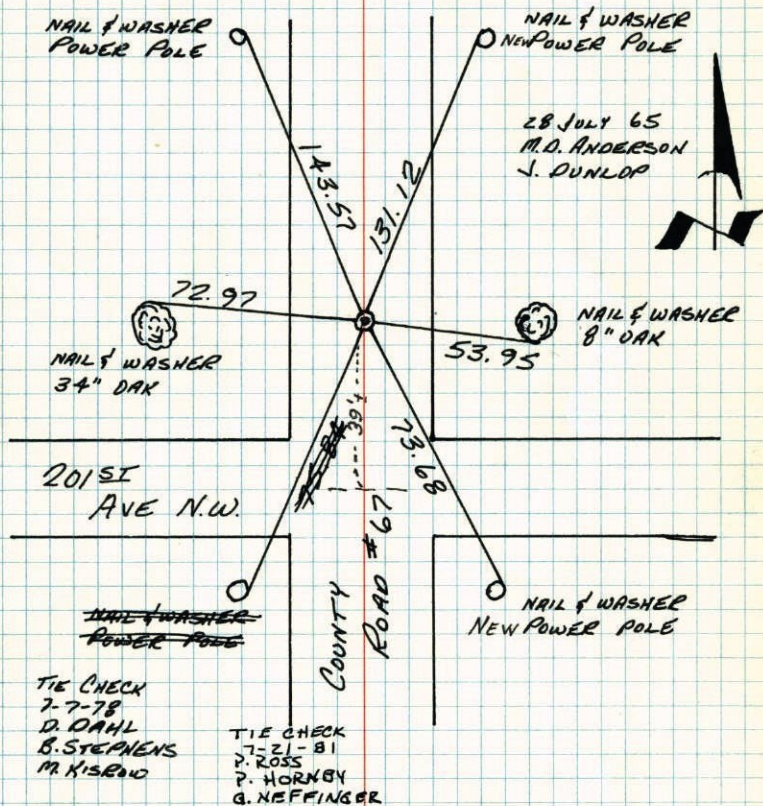 NAIL & WASHER
POWER POLE
NAIL & WASHER
NEW POWER POLE
28 JULY 65
M.D. ANDERSON
J. DUNLOP
143.57
131.12
72.97
NAIL & WASHER
34" OAK
53.95
NAIL & WASHER
8" OAK
39'±
73.68
201 ST
AVE N.W.
COUNTY
ROAD #67
NAIL & WASHER
POWER POLE
NAIL & WASHER
NEW POWER POLE
TIE CHECK
7-7-78
D. DAHL
B. STEPHENS
TIE CHECK
7-21-81
P. ROSS
P. HORNBY
G. NEFFINGER